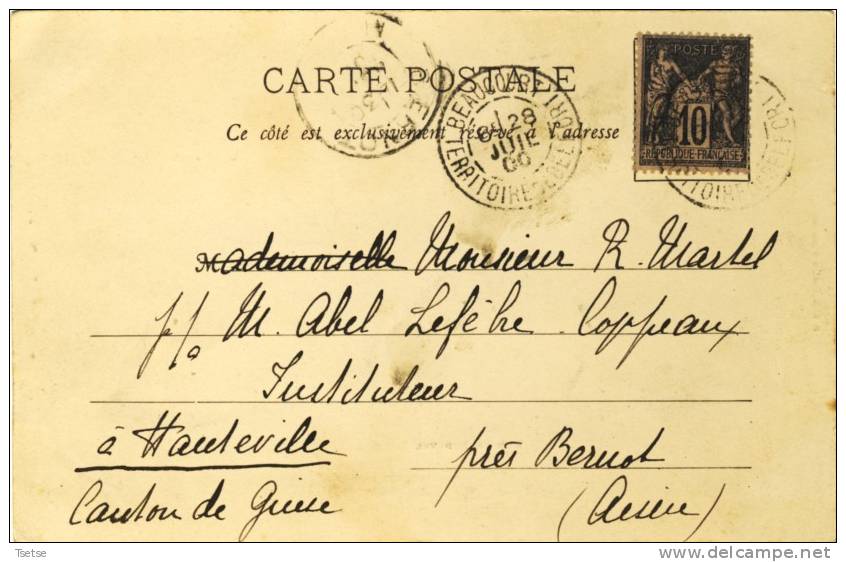 CARTE POSTALE
Ce côté est exclusivement réservé à l'adresse
POSTE
10
REPUBLIQUE FRANÇAISE
BEAUCOURT
28
JUIL
TERRITOIRE DE BELFORT
Mademoiselle Monsieur R. Martel
M. Abel Lefèbre-Coppeaux
Instituteur
à Hauteville près Bernot
Canton de Guise (Aisne)
Tsetse
delcampe.net